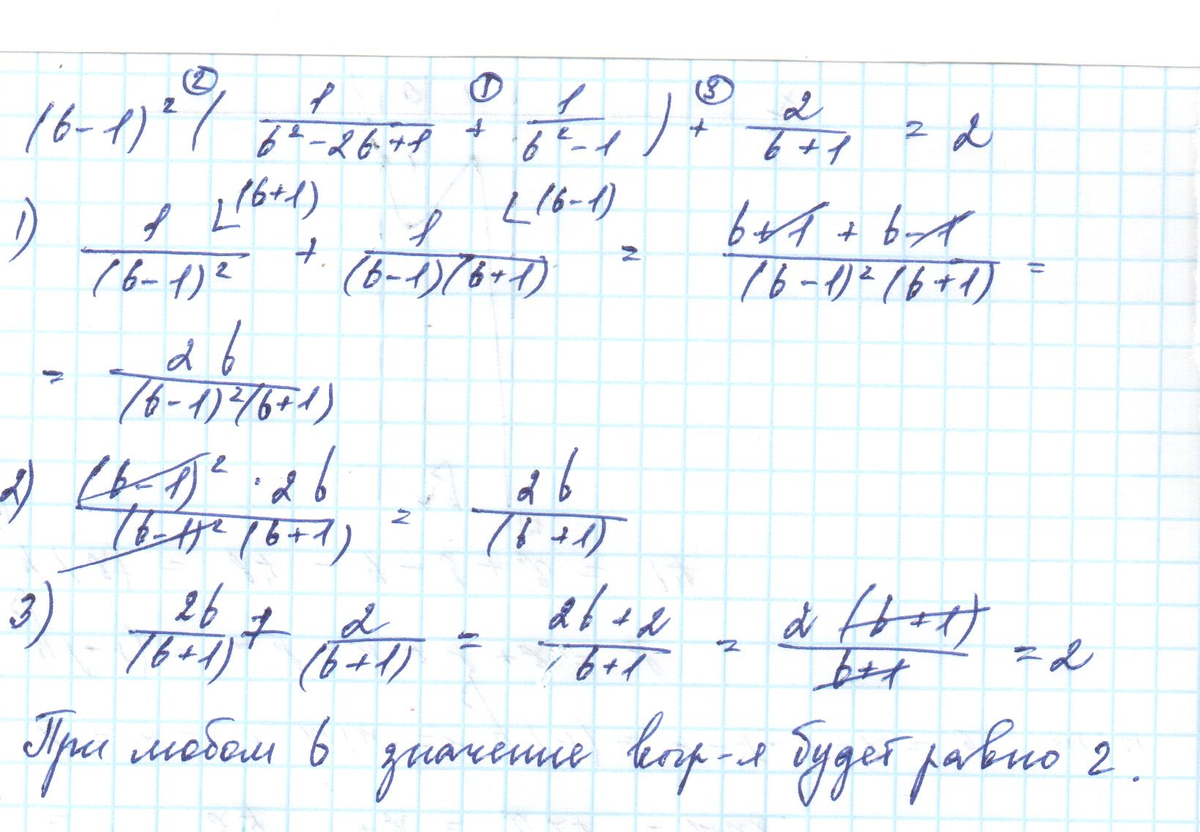 (b-1)² ② ( 1/(b²-2b+1) ① + 1/(b²-1) ) ③ + 2/(b+1) = 2
1) 1/(b-1)² ⌊(b+1) + 1/((b-1)(b+1)) ⌊(b-1) = (b+1+b-1)/((b-1)²(b+1)) =
= 2b/((b-1)²(b+1))
2) ((b-1)² · 2b)/((b-1)²(b+1)) = 2b/(b+1)
3) 2b/(b+1) + 2/(b+1) = (2b+2)/(b+1) = 2(b+1)/(b+1) = 2
При любом b значение выр-я будет равно 2.